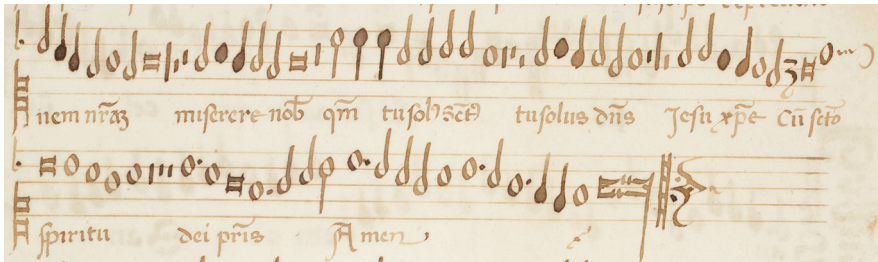 nem nr̃aʒ miserere nob̃ qm̃ tu sol9 sc̃t9 tu solus dñs Jesu xp̃e Cũ sc̃to
spiritu dei pr̃is Amen